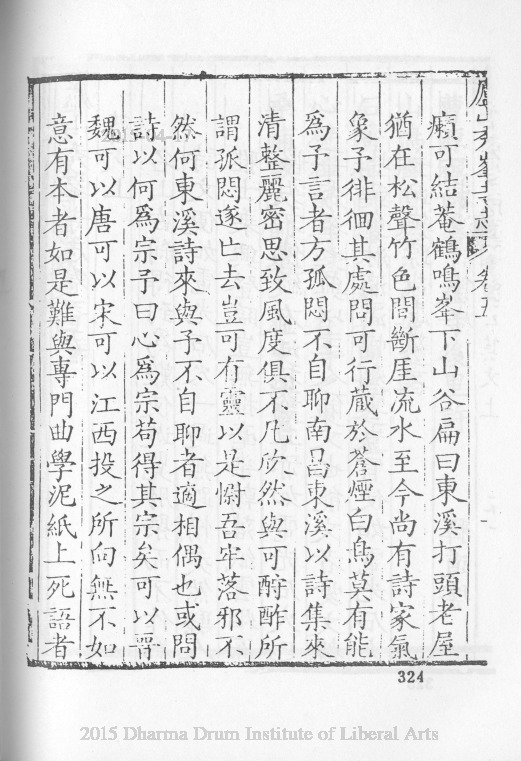 廬山秀峯寺志 卷五
癩可結菴鶴鳴峯下山谷扁曰東溪打頭老屋
猶在松聲竹色間斷厓流水至今尚有詩家氣
象予徘徊其處問可行蕆於蒼煙白鳥莫有能
為予言者方孤悶不自聊南昌東溪以詩集來
清整麗密思致風度俱不凡欣然與可酧酢所
謂孤悶遂亡去豈可有靈以是慰吾牢落邪不
然何東溪詩來與予不自聊者適相偶也或問
詩以何爲宗予曰心爲宗苟得其宗矣可以晉
魏可以唐可以宋可以江西投之所向無不如
意有本者如是難與專門曲學泥紙上死語者
324
2015 Dharma Drum Institute of Liberal Arts